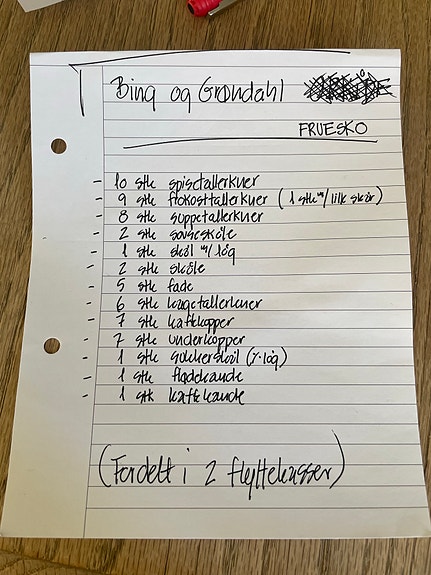 Bing og Grøndahl
FRUESKO
- 10 stk spisetallerkner
- 9 stk frokosttallerkner (1 stk m/lille skår)
- 8 stk suppetallerkner
- 2 stk sovseskåle
- 1 stk skål m/låg
- 2 stk skåle
- 5 stk fade
- 6 stk kagetallerkner
- 7 stk kaffekopper
- 7 stk underkopper
- 1 stk sukkerskål (÷låg)
- 1 stk flødekande
- 1 stk kaffekande
(Fordelt i 2 flyttekasser)